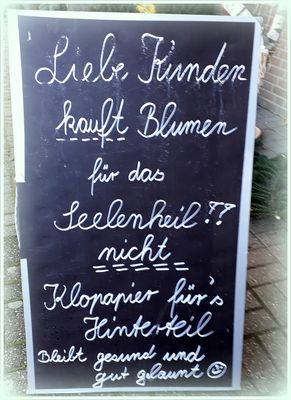 Liebe Kunden
kauft Blumen
für das
Seelenheil!!
nicht
Klopapier für's
Hinterteil
Bleibt gesund und
gut gelaunt ☺